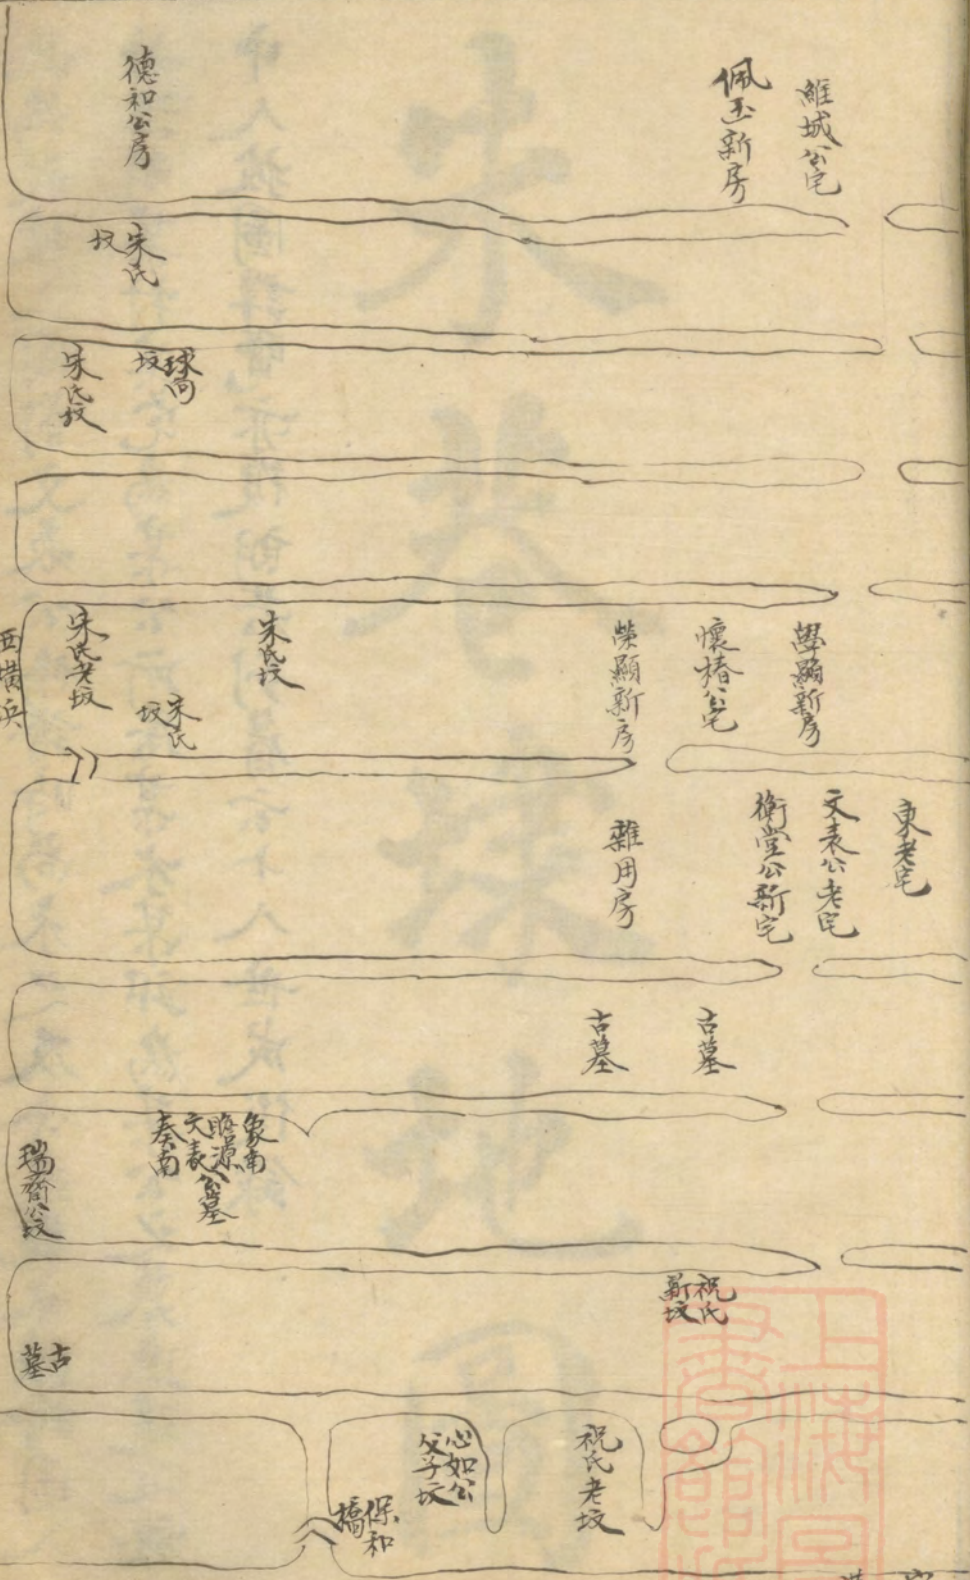 維城公宅
佩玉新房
德和公房
宋氏
坟
球向
坟
宋氏坟
學顯新房
懷椿公宅
榮顯新房
宋氏坟
宋氏
坟
宋氏老坟
西橫浜
東老宅
文表公老宅
衡堂公新宅
雜用房
古墓
古墓
象南
晦源
文表
奏南
公墓
瑞齋公坟
祝氏
新坟
古
墓
祝氏老坟
心如公
父子坟
保和
橋
上海
書館